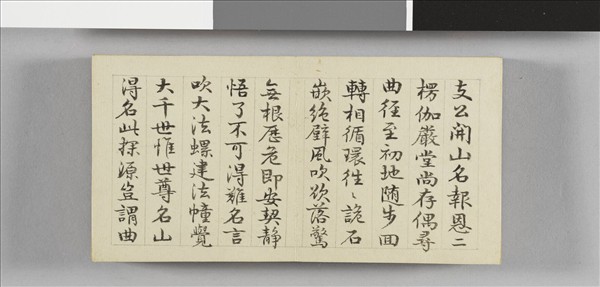 支公開山名報恩二
楞伽嚴堂尚存偶尋
曲徑至初地随步回
轉相循環徃〻詭石
嵌絶壁風吹欲落驚
無根歷危即安契静
悟了不可得難名言
吹大法螺建法幢覺
大千世惟世尊名山
得名此探源豈謂曲